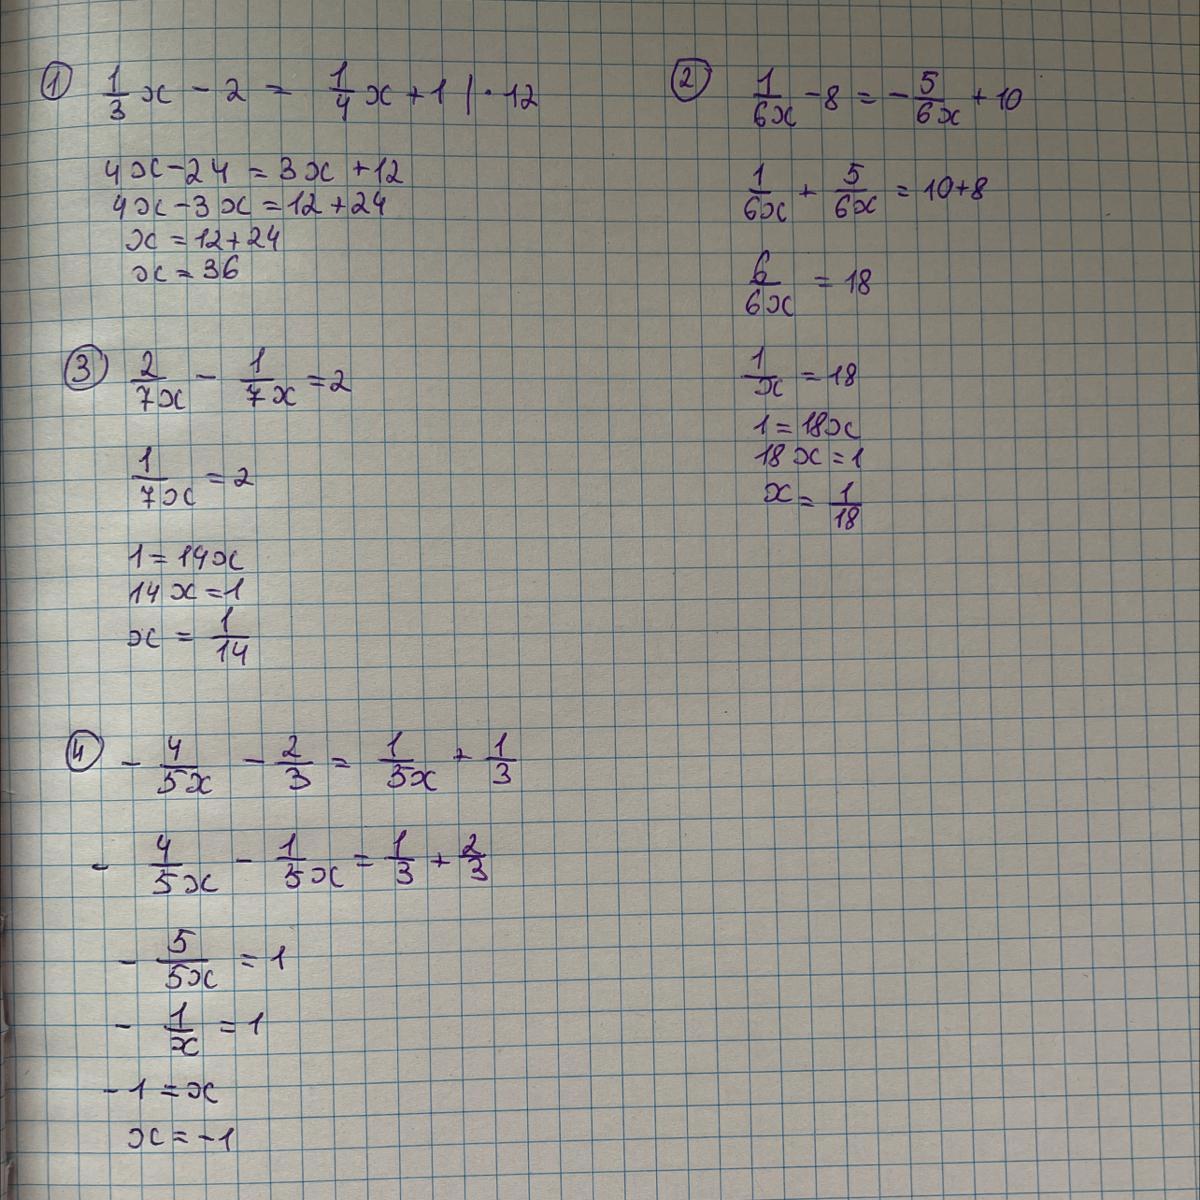 ① 1/3 x - 2 = 1/4 x + 1 | · 12
4x - 24 = 3x + 12
4x - 3x = 12 + 24
x = 12 + 24
x = 36
② 1/6x - 8 = - 5/6x + 10
1/6x + 5/6x = 10 + 8
6/6x = 18
1/x = 18
1 = 18x
18x = 1
x = 1/18
③ 2/7x - 1/7x = 2
1/7x = 2
1 = 14x
14x = 1
x = 1/14
④ - 4/5x - 2/3 = 1/5x + 1/3
- 4/5x - 1/5x = 1/3 + 2/3
- 5/5x = 1
- 1/x = 1
-1 = x
x = -1